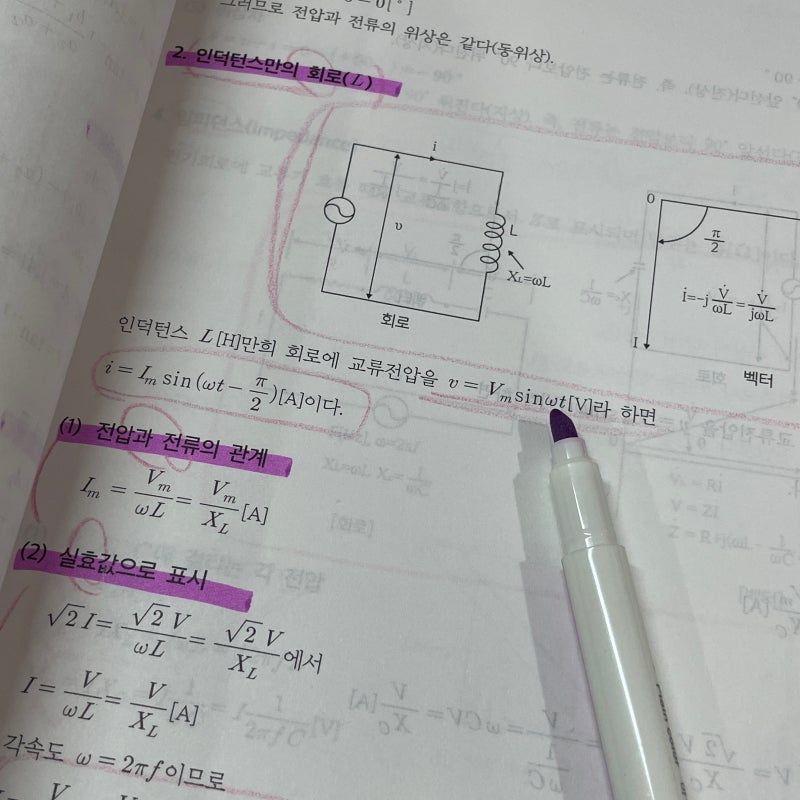 그러므로 전압과 전류의 위상은 같다(동위상).
2. 인덕턴스만의 회로(L)
i
v
L
X_L=ωL
회로
0
π/2
İ=-j V̇/ωL = V̇/jωL
I
벡터
인덕턴스 L[H]만의 회로에 교류전압을 v = V_m sinωt[V]라 하면
i = I_m sin(ωt - π/2)[A]이다.
(1) 전압과 전류의 관계
I_m = V_m/ωL = V_m/X_L [A]
(2) 실효값으로 표시
√2 I = √2 V/ωL = √2 V/X_L 에서
I = V/ωL = V/X_L [A]
각속도 ω = 2πf이므로